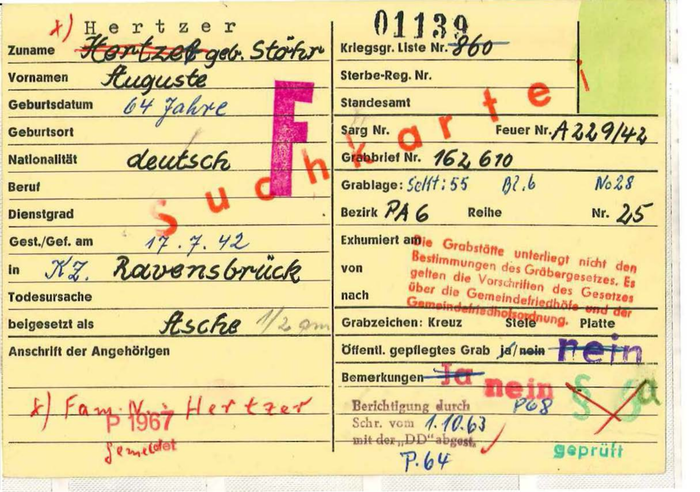 x) Hertzer
Zuname Hertzel geb. Stöhr
Vornamen Auguste
Geburtsdatum 64 Jahre
Geburtsort
Nationalität deutsch
Beruf
Dienstgrad
Gest./Gef. am 17.7.42
in KZ. Ravensbrück
Todesursache
beigesetzt als Asche 1/2 qm
Anschrift der Angehörigen
x) Fam. N.: Hertzer
P 1967
gemeldet
F
Suchkartei
01139
Kriegsgr. Liste Nr. 860
Sterbe-Reg. Nr.
Standesamt
Sarg Nr. Feuer Nr. A 229/42
Grabbrief Nr. 162 610
Grablage: 55 Bl. 6 No 28
Bezirk PA 6 Reihe Nr. 25
Exhumiert am
von
nach
Die Grabstätte unterliegt nicht den
Bestimmungen des Gräbergesetzes. Es
gelten die Vorschriften des Gesetzes
über die Gemeindefriedhöfe und der
Gemeindefriedhofsordnung.
Grabzeichen: Kreuz Stele Platte
Öffentl. gepflegtes Grab ja/nein nein
Bemerkungen Ja nein
P68
§ 6 a
Berichtigung durch
Schr. vom 1.10.63
mit der „DD" abgest.
P.64
geprüft